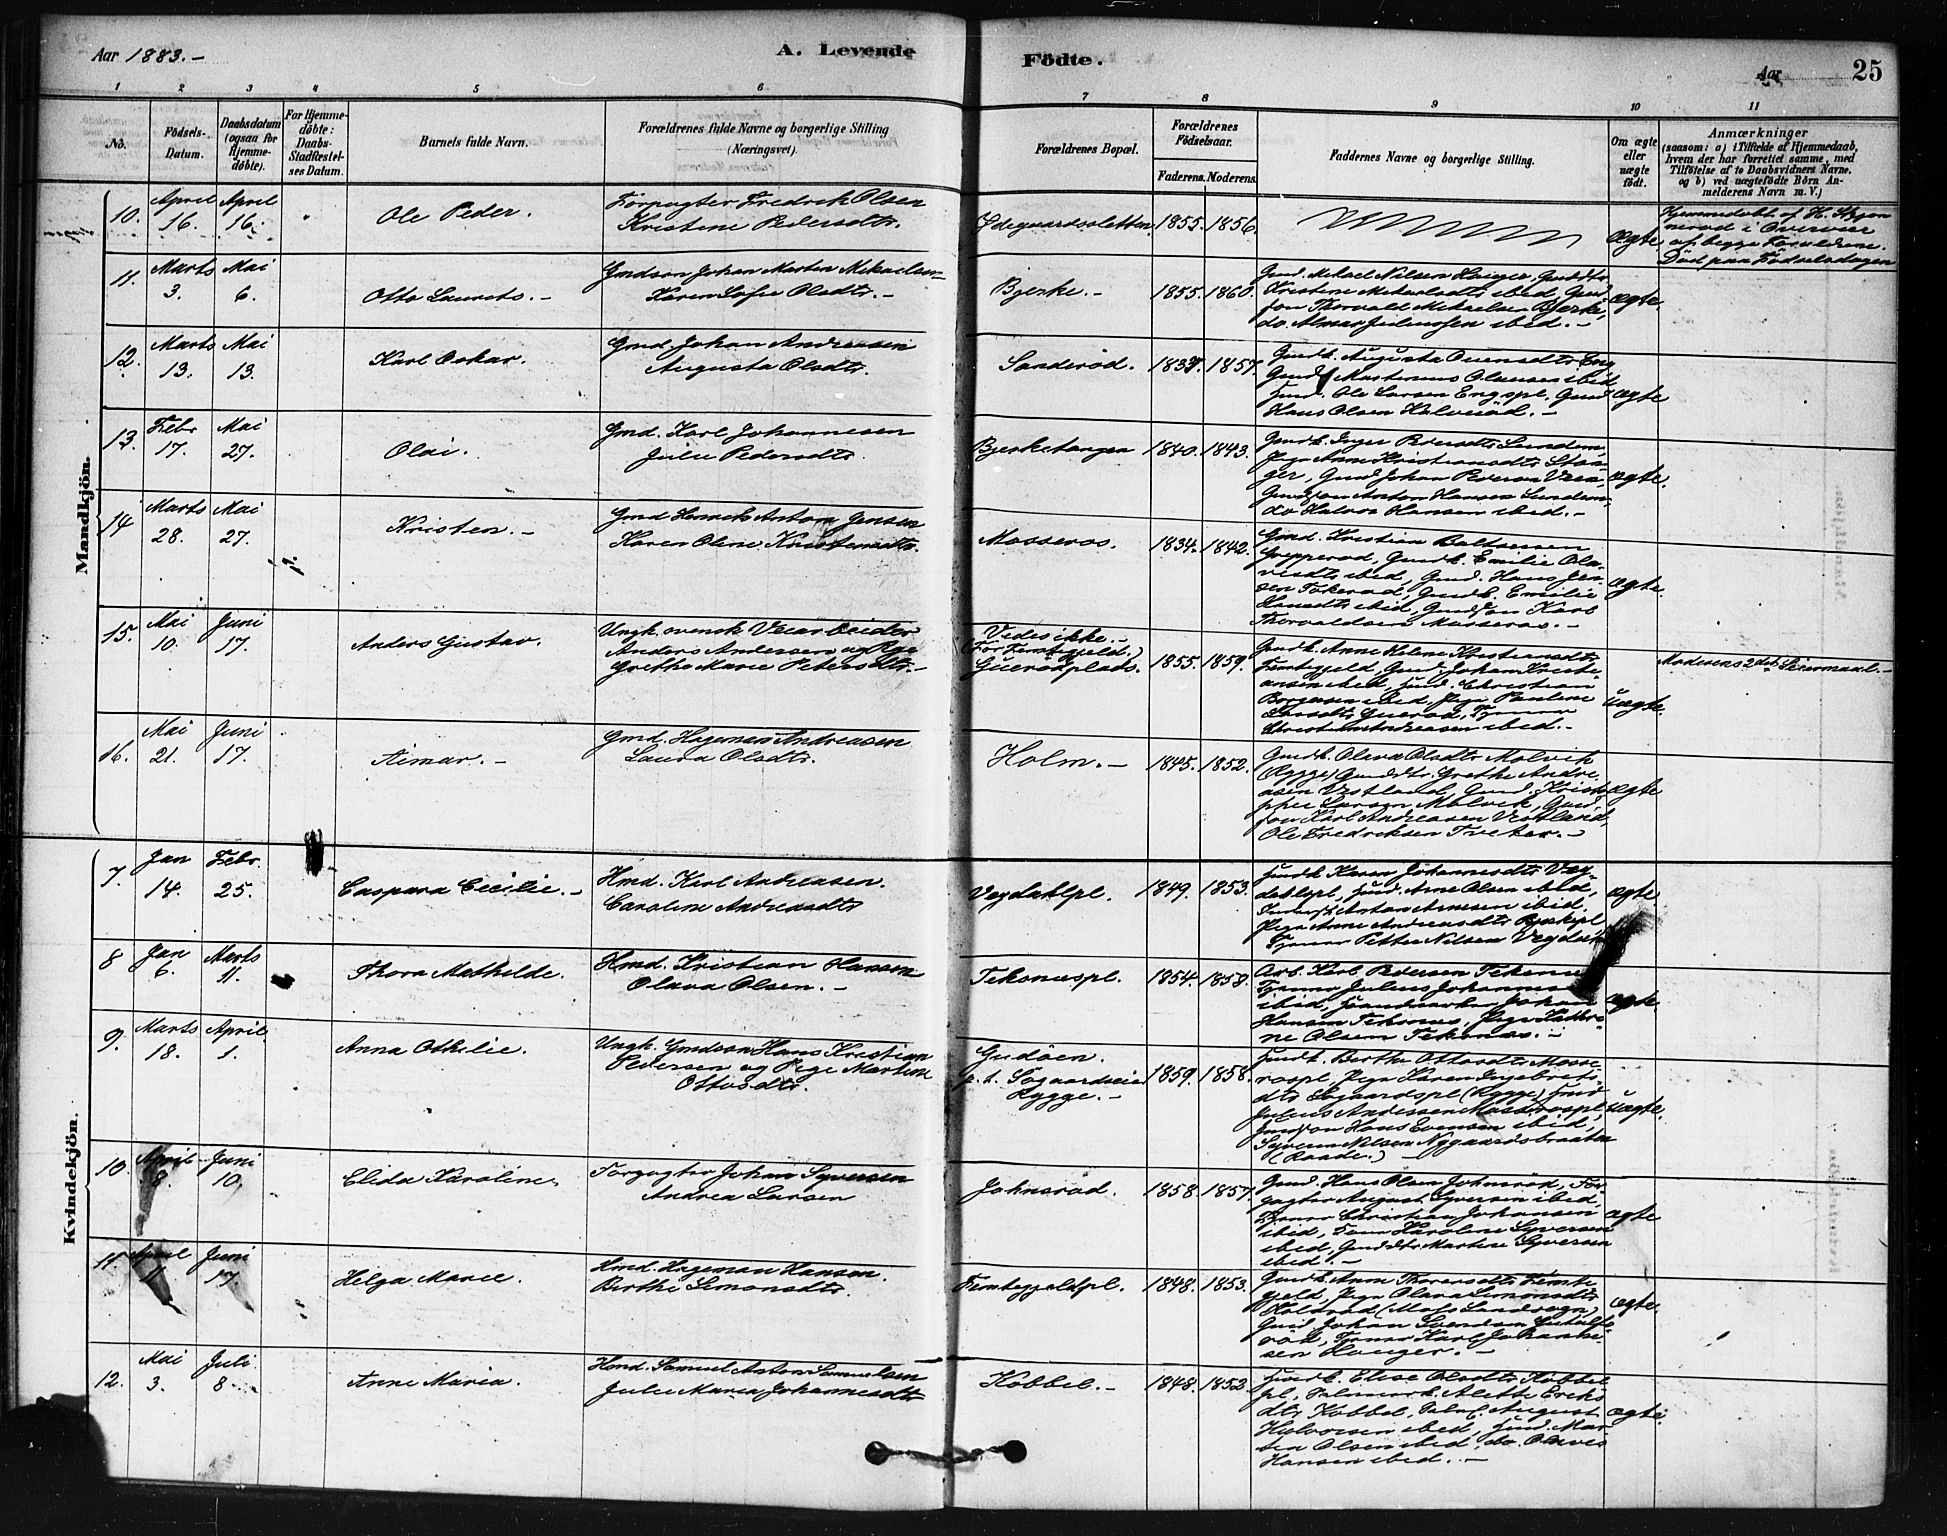 Aar 1883.-
A. Levende
Födte.
Aar
25
1 2 3 4 5 6 7 8 9 10 11
No.
Födsels-
Datum.
Daabsdatum
(ogsaa for
Hjemme-
döbte).
For Hjemme-
döbte:
Daabs-
Stadfæstel-
ses Datum.
Barnets fulde Navn.
Forældrenes fulde Navne og borgerlige Stilling
(Næringsvei).
Forældrenes Bopæl.
Forældrenes
Födselsaar.
Faderens. Moderens.
Faddernes Navne og borgerlige Stilling.
Om ægte
eller
uægte
födt.
Anmærkninger
(saasom: a) i Tilfælde af Hjemmedaab,
hvem der har forrettet samme, med
Tilföielse af to Daabsvidners Navne,
og b) ved uægtefödte Börn An-
melderens Navn m. V.)
Mandkjön.
10. April 16. April 16.
Ole Peder.
Forpagter Fredrik Olsen
Kristine Pedersdtr.
1855. 1856.
ægte
Hjemmedöbt af
i Overvær
af begge Forældrene.
Död paa Födselsdagen
11. Marts 3. Mai 6.
Otto Laurits.-
Gmdsön Johan Martin Mikaelsen
Karen Sofie Olsdtr.-
Bjerke.-
1855. 1860.
Gmd. Mikael Nilsen Hauger, Gmddtr
Kristine Mikaelsdtr ibid, Gmd
sön Thorvald Mikaelsen Bjerke,
do. Almar ibid.-
ægte.
12. Marts 13. Mai 13.
Karl Oskar.
Gmd. Johan Andreasen
Augusta Olsdtr.
Sanderöd.
1857.
Gmdk. Augusta Eng
Gmd. Martinius Olausen ibid,
Hmd. Ole Larsen Engspl. Gmd
Hans Olsen Halveröd.-
ægte
13. Febr 17. Mai 27.
Olai.
Gmd. Karl Johannesen
Julie Pedersdtr.
Bjerketangen
1840. 1843.
Gmdk. Inger Pedersdtr Lundem,
Pige Anne Kristiansdtr
Gmd Johan Pedersen
Gmdsön Anton Hansen Lundem,
do Halvor Hansen ibid.-
ægte.
14 Marts 28. Mai 27.
Kristen.-
Gmd Henrik Anton Jensen
Karen Oline Kristensdtr.
Mosseros.
1834. 1842.
Gmd. Kristian Baltsersen
Gmdk. Emilie Ola-
visdtr ibid, Gmd. Hans Jen-
sen Tokerod, Gmdk. Emilie
Hansdtr ibid, Gmdsön Karl
Thorvaldsen Mosseros.-
ægte.
15. Mai 10. Juni 17.
Anders Gustav.
Ungk. svensk Veiarbeider
Anders Andersen og Pige
Grethe Marie Petersdtr.-
Vides ikke.-
1855. 1859.
Gmdk. Anne Helene Kristiansdtr
Gmd. Johan Kristi-
ansen ibid, Hmd. Christian
Borgersen ibid, Pige Pauline
Larsdtr Gueröd, Tjener
Christian Andreasen ibid.-
uægte.
Moderens 2det Leiermaal.-
16. Mai 21. Juni 17.
Aimar.-
Gmd. Hageman Andreasen
Laura Olsdtr.
Holm.-
1845. 1852.
Gmdk. Olava Olsdtr Molvik
(Rygge) Gmddtr. Grethe Andre-
asen Vestland, Gmd. Kristo-
pher Larsen Molvik, Gmd.
sön Karl Andreasen Vestland,
Ole Fredriksen Træter.-
ægte
Kvindekjön.
7. Jan 14. Febr. 25.
Caspara Cecilie.-
Hmd. Karl Andreasen.
Caroline Andreasdtr
Vegdahlpl.
1849. 1853.
Hmdk Karen Johannesdtr Veg-
dahlpl, Hmd. Arne Olsen ibid,
Anton Arnesen ibid.
Pige Anne Andreasdtr Bjerkepl
Tjener Petter Nilsen
ægte.
8 Jan 6. Marts 11.
Thora Mathilde.
Hmd. Kristian Hansen
Olava Olsen.-
Teksnæspl.
1854. 1858.
Arb. Karl Pedersen
Tjener Julius Johannes
ibid, Johan
Hansen Teksnæs, Pige
ne Olsen Teksnæs.-
ægte.
9. Marts 18. April 1.
Anna Othilie.
Ungk. Gmdsön Hans Kristian
Pedersen og Pige Martine
Ottosdtr.
Gudöen.
p.t.
Rygge.-
1859. 1858.
Hmdk. Berthe Ottosdtr Mosse-
rospl, Pige Karen Ingebrets-
dtr (Rygge) Hmd
Julius Andersen Mosserospl,
Hmdsön Hans Evensen ibid,
Syvern Nilsen Nygaardsbraaten
(Raade.)
uægte.
10. April 8. Juni 10.
Elida Karoline.
Forpagter Johan Syversen
Andrea Larsen
Johnsröd.
1858. 1857.
Gmd. Hans Olsen Johnsröd, For-
pagter August Syversen ibid,
Tjener Christian Johansen
ibid, Karoline Syversen
ibid, Gmddtr Martine Syversen
ibid.-
ægte
11. April 11. Juni 17.
Helga Marie.
Hmd. Hageman Hansen.
Berthe Simonsdtr.
1848. 1853.
Gmdk. Anne Thoresdtr
Pige Olava Simonsdtr
Gmd Johan Svendsen
Tjener Karl Johanne-
sen Hauger.-
ægte.
12. Mai 3. Juli 8
Anne Maria.
Hmd. Samuel Anton Samuelsen
Julie Maria Johannesdtr
Kobbel.-
1848. 1852.
Hmdk. Elise Olsdtr Kobbel
pl, Alette Eriks
dtr Kobbel, August
Halvorsen ibid, Hmd. Mar-
tin Olsen ibid, do. Olaves
Hansen ibid.-
ægte